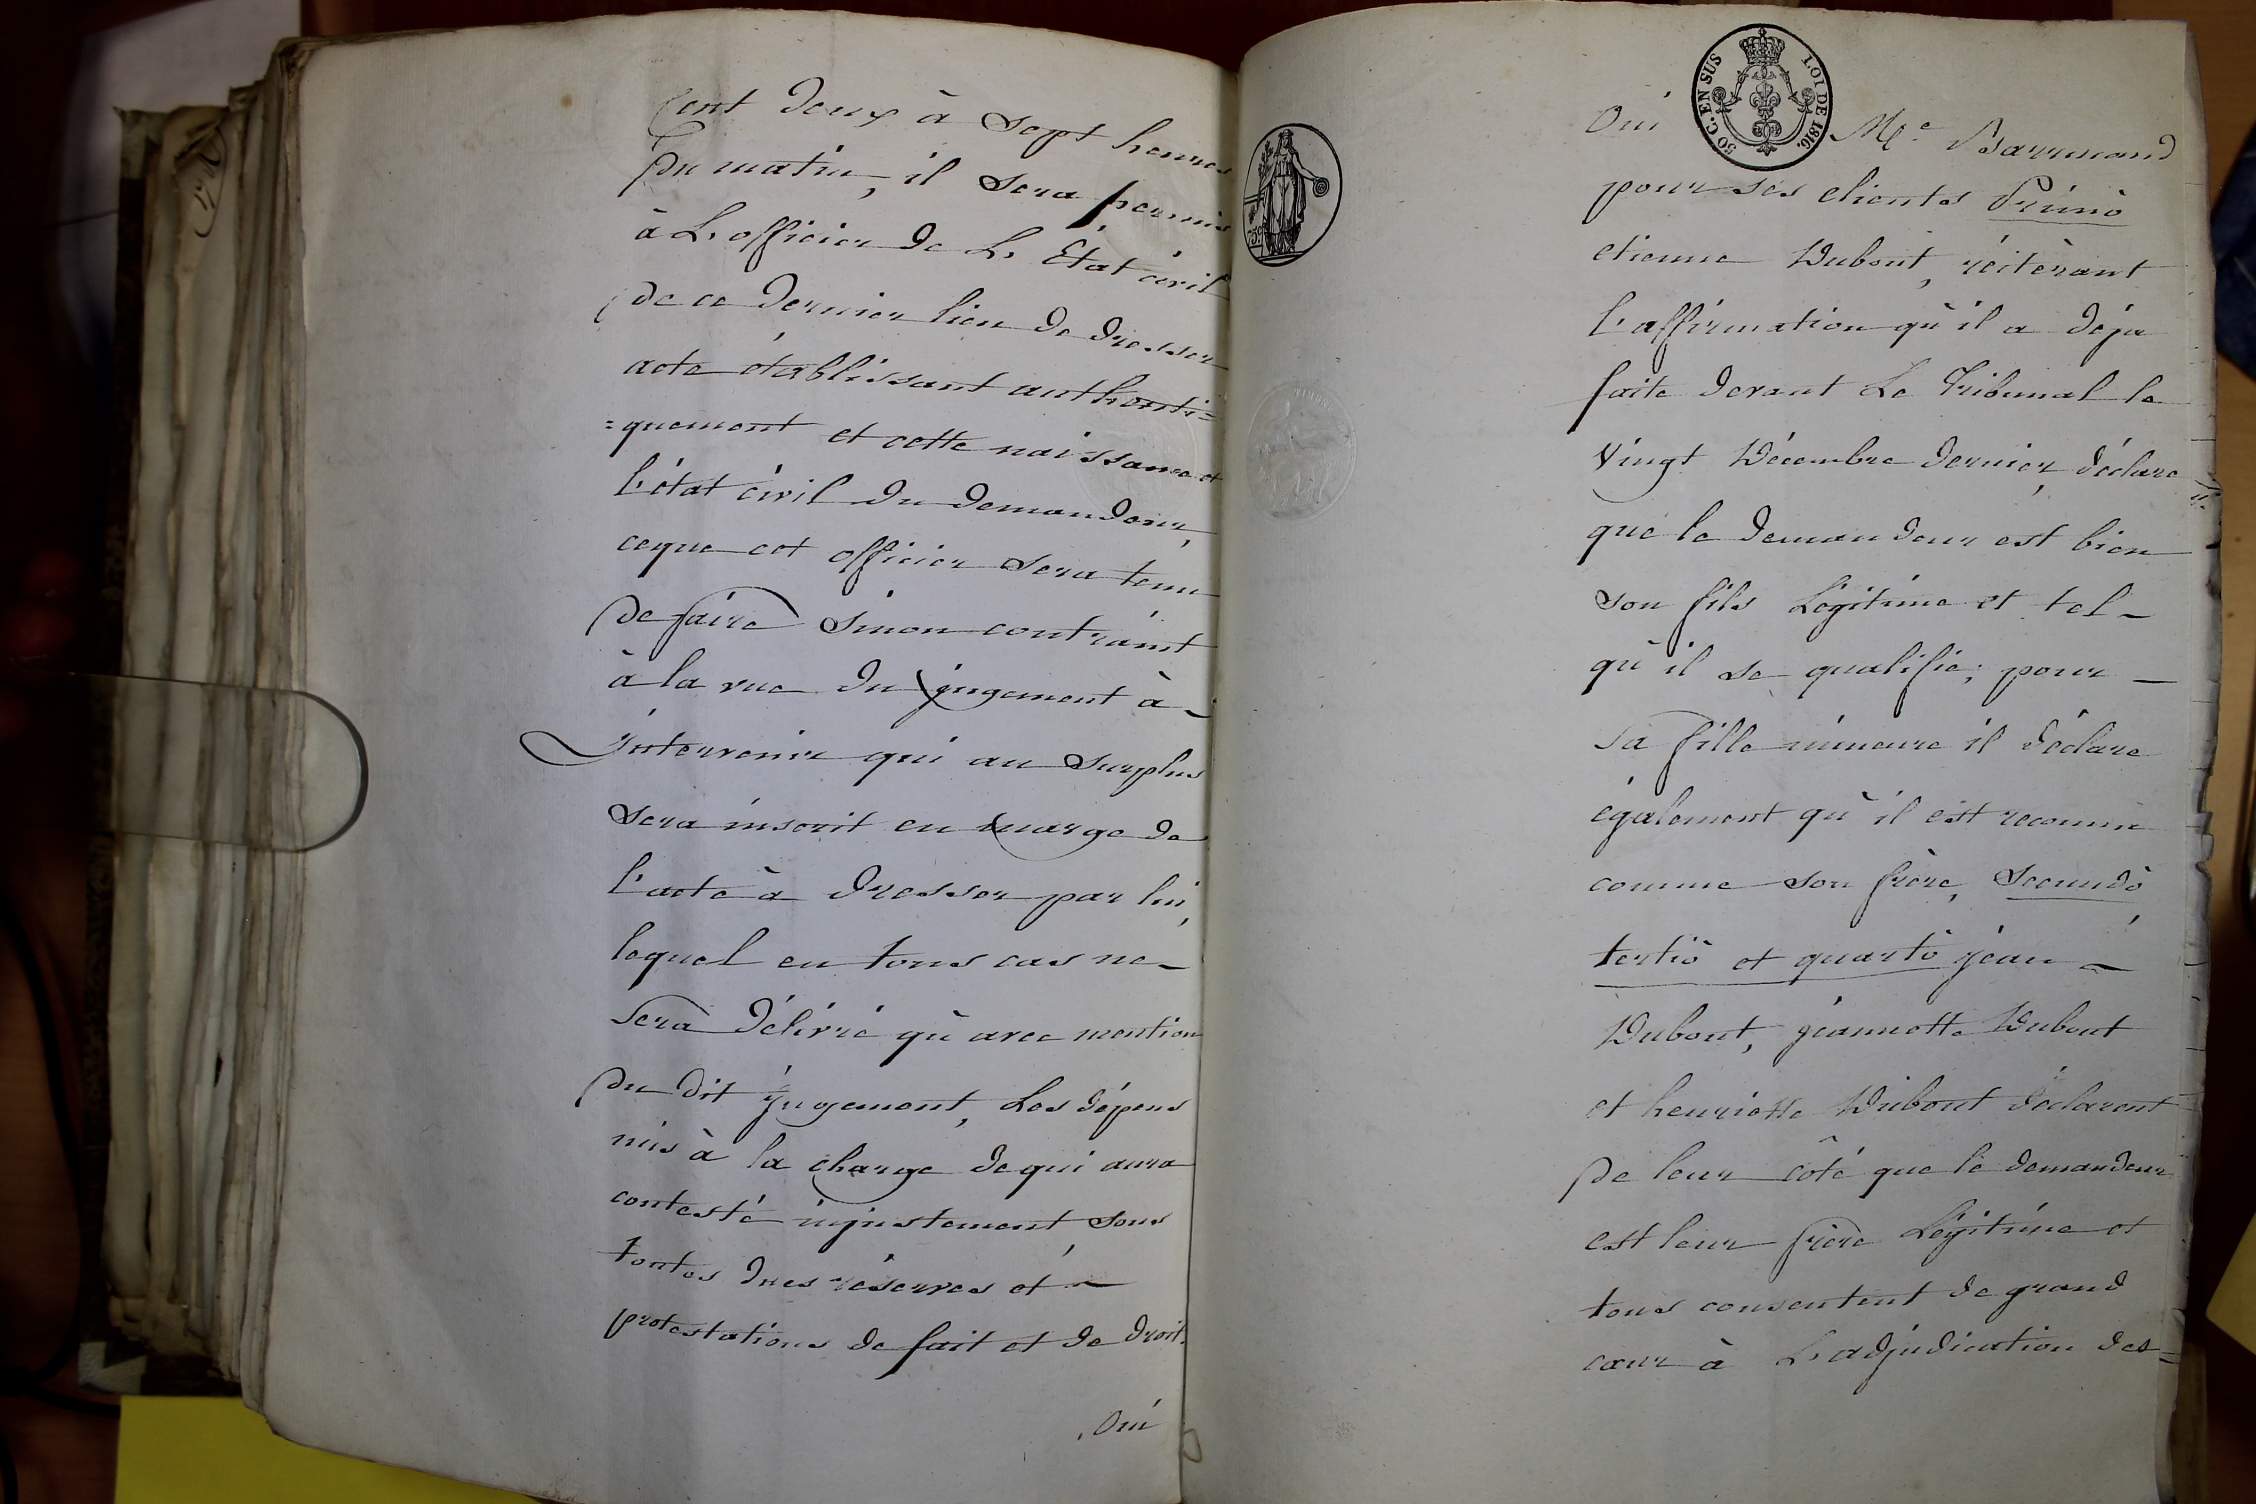 cent deux à Sept heures
Du matin, il Sera permis
à L'officier de L'État civil
de ce dernier lieu de dresser
acte établissant authenti=
=quement et cette naissance et
l'état civil du demandeur,
ceque cet officier sera tenu
de faire Sinon contraint
à la vue du jugement à -
intervenir qui au Surplus
Sera inscrit en marge de
l'acte à dresser par lui,
lequel en tous cas ne -
sera délivré qu'avec mention
du dit jugement, Les dépens
mis à la charge de qui aura
contesté injustement, sous
toutes dues réserves et -
protestations de fait et de droit.
Oui
50 C. EN SUS
LOI DE 1816.
Oui Me. Barrmand
pour ses clients Primò
etienne Dubout, réitérant
l'affirmation qu'il a déja
faite devant Le Tribunal le
vingt Décembre dernier, déclare
que le demandeur est bien
son fils Légitime et tel -
qu'il se qualifie; pour -
sa fille mineure il déclare
également qu'il est reconnu
comme son frère, Secundò,
tertiò et quartò jean -
Dubout, jeannette Dubout
et henriette Dubout déclarent
de leur côté que le demandeur
est leur frère Légitime et
tous consentent de grand
cœur à L'adjudication des=